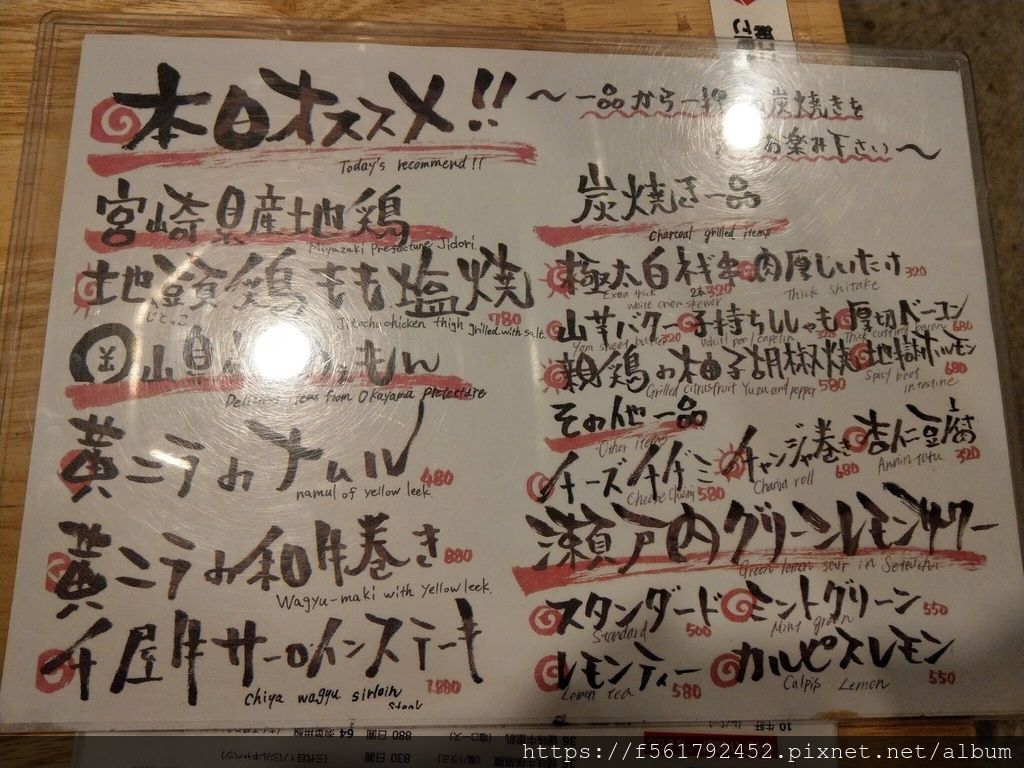 本日オススメ!!
Today's recommend!!
〜一品から一押
炭焼きを
お楽み下さい〜
宮崎県産地鶏
Miyazaki prefecture Jidori.
地頭鶏もも塩焼 780
じとっこ
Jitocho chicken thigh grilled with salt.
山県
もん
Delicious items from Okayama prefecture
黄ニラのナムル 480
namul of yellow leek.
黄ニラの和牛巻き 880
Wagyu-maki with yellow leek.
千屋牛サーロインステーキ 1,880
chiya wagyu sirloin
Steak
炭焼き一品
Charcoal grilled items
極太白ネギ串 2本320
Extra thick
white onion skewer
肉厚しいたけ 320
Thick shitake
山芋バター 320
Yam sheet butter
子持ちししゃも 320
Whirl pool capelin
厚切ベーコン 680
Thick cutting bacon
親鶏の柚子胡椒焼 580
Grilled citrus fruit Yuzu and pepper
地獄ホルモン 680
Spicy beef
intestine
その他一品
Other items
チーズチヂミ 580
Cheese Chijimi
チャンジャ巻き 680
Chanja roll
杏仁豆腐 320
Annin tofu
瀬戸内グリーンレモンサワー
Green lemon sour in Setouchi
スタンダード 500
Standard
ミントグリーン 550
Mint green
レモンティー 580
Lemon tea
カルピスレモン 550
Calpis Lemon
https://f561792452.pixnet.net/album